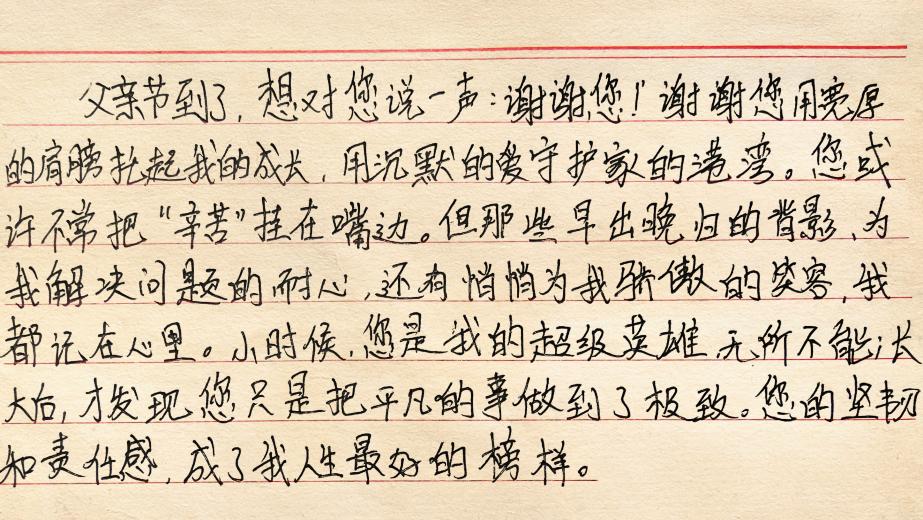 父亲节到了,想对您说一声:谢谢您!谢谢您用宽厚
的肩膀托起我的成长,用沉默的爱守护家的港湾。您或
许不常把“辛苦”挂在嘴边。但那些早出晚归的背影、为
我解决问题的耐心,还有悄悄为我骄傲的笑容,我
都记在心里。小时候,您是我的超级英雄,无所不能;长
大后,才发现您只是把平凡的事做到了极致。您的坚韧
和责任感,成了我人生最好的榜样。